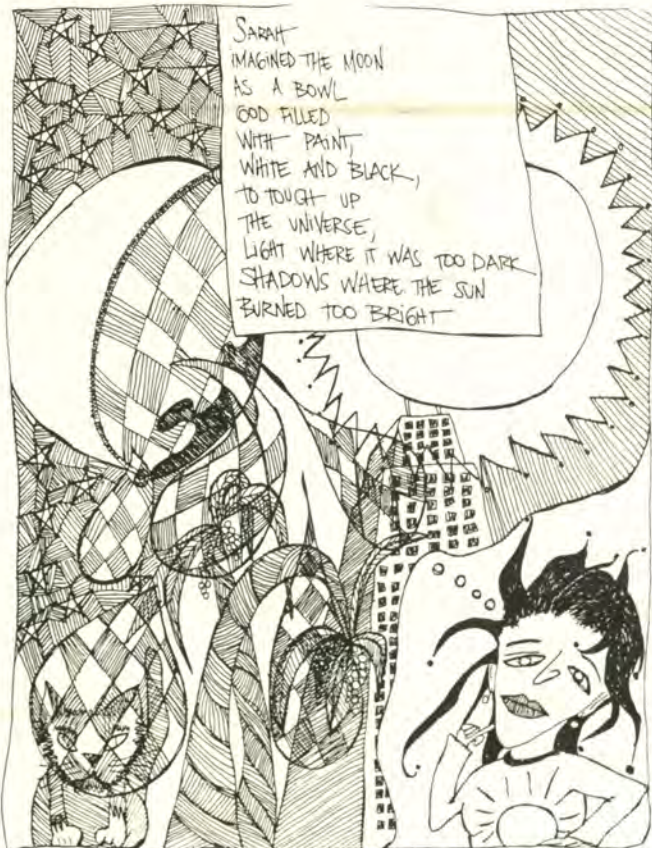 SARAH
IMAGINED THE MOON
AS A BOWL
GOD FILLED
WITH PAINT,
WHITE AND BLACK,
TO TOUGH UP
THE UNIVERSE,
LIGHT WHERE IT WAS TOO DARK
SHADOWS WHERE THE SUN
BURNED TOO BRIGHT